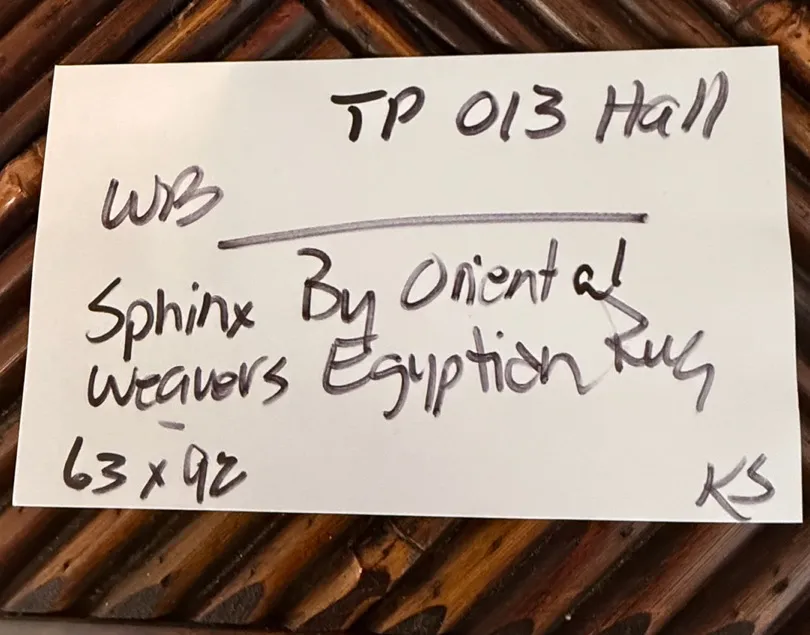 TP 013 Hall
WB
Sphinx By Oriental
Weavers Egyption Rug
63 x 92
KS